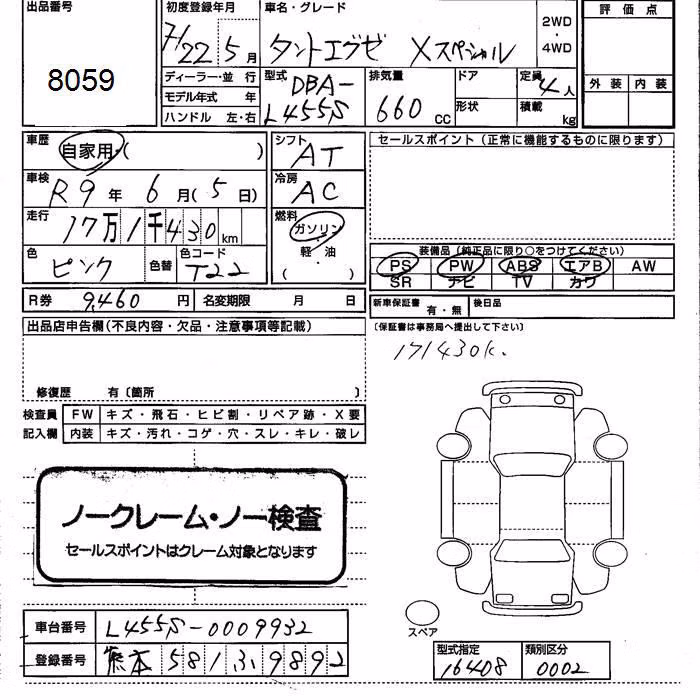 出品番号 初度登録年月 車名・グレード 評価点
8059 H22 5月 タントエグゼ Xスペシャル 2WD・4WD
ディーラー・並行 型式 排気量 ドア 定員 外装 内装
モデル年式 年 DBA- 4人
ハンドル 左・右 L455S 660CC 形状 積載 kg
車歴 自家用・( ) シフト AT セールスポイント(正常に機能するものに限ります)
車検 R9年 6月(5日) 冷房 AC
走行 17万1千430km 燃料 ガソリン
軽・油
色 ピンク 色替 色コード T22 ・( ) 装備品(純正品に限り○をつけてください)
PS PW ABS エアB AW
SR ナビ TV カワ
R券 9,460円 名変期限 月 日 新車保証書 有・無 後日品
出品店申告欄(不良内容・欠品・注意事項等記載) (保証書は事務局へ提出して下さい)
171430k.
修復歴 有〔箇所 〕
検査員 FW キズ・飛石・ヒビ割・リペア跡・X要
記入欄 内装 キズ・汚れ・コゲ・穴・スレ・キレ・破レ
ノークレーム・ノー検査
セールスポイントはクレーム対象となります
スペア
車台番号 L455S-0009932
登録番号 熊本 581 ス 9892
型式指定 類別区分
16408 0002